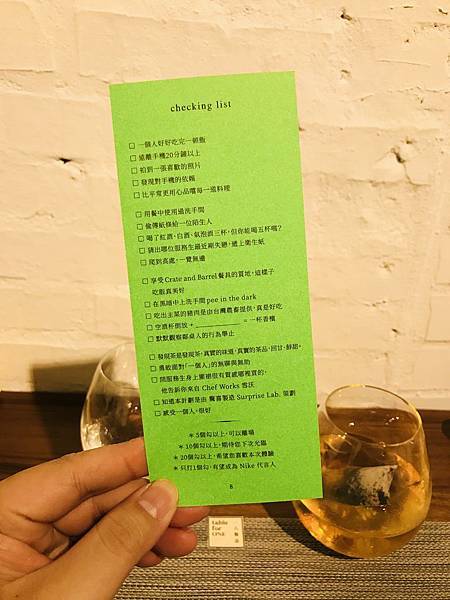 checking list
□ 一個人好好吃完一頓飯
□ 遠離手機20分鐘以上
□ 拍到一張喜歡的照片
□ 發現對手機的依賴
□ 比平常更用心品嚐每一道料理
□ 用餐中使用過洗手間
□ 偷傳紙條給一位陌生人
□ 喝了紅酒、白酒、氣泡酒三杯,但你能喝五杯嗎?
□ 猜出哪位服務生最近剛失戀,遞上衛生紙
□ 爬到高處,一覽無遺
□ 享受 Crate and Barrel 餐具的質地,這樣子
吃飯真美好
□ 在黑暗中上洗手間 pee in the dark
□ 吃出主菜的豬肉是由台灣農畜提供,真是好吃
□ 空酒杯倒放 + ________ = 一杯香檳
□ 默默觀察鄰桌人的行為舉止
□ 發現茶是發現茶,真實的味道,真實的茶品,回甘、醇韻。
□ 勇敢面對「一個人」的無聊與無助
□ 問服務生身上圍裙很有質感哪裡買的,
他告訴你來自 Chef Works 雪沃
□ 知道本計劃是由 驚喜製造 Surprise Lab. 策劃
□ 感受一個人,很好
* 5個勾以上,可以離場
* 10個勾以上,期待您下次光臨
* 20個勾以上,希望您喜歡本次體驗
* 只打1個勾,有望成為 Nike 代言人
8
table
for
ONE
一人餐桌